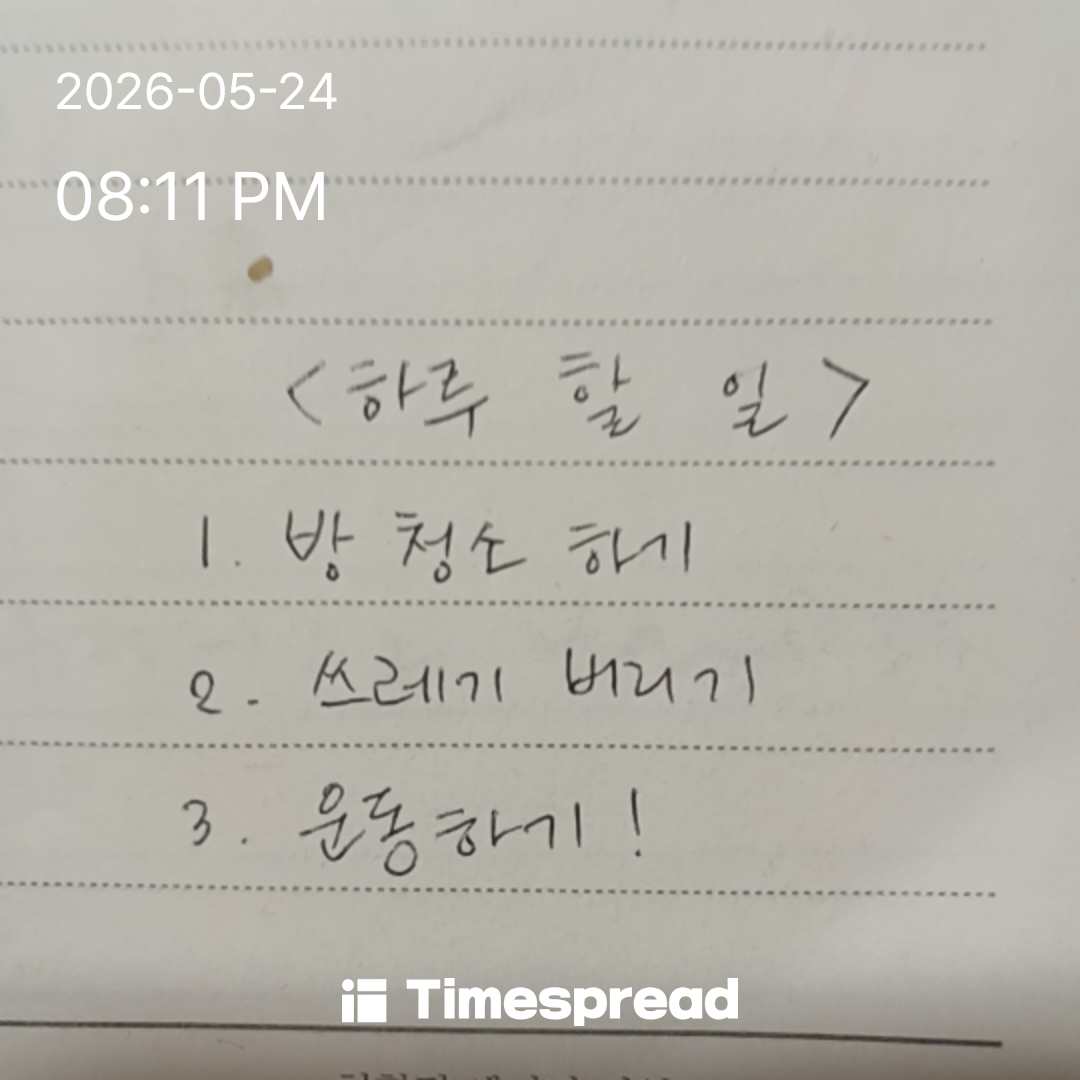 2026-05-24
08:11 PM
<하루 할 일>
1. 방 청소 하기
2. 쓰레기 버리기
3. 운동하기!
Timespread